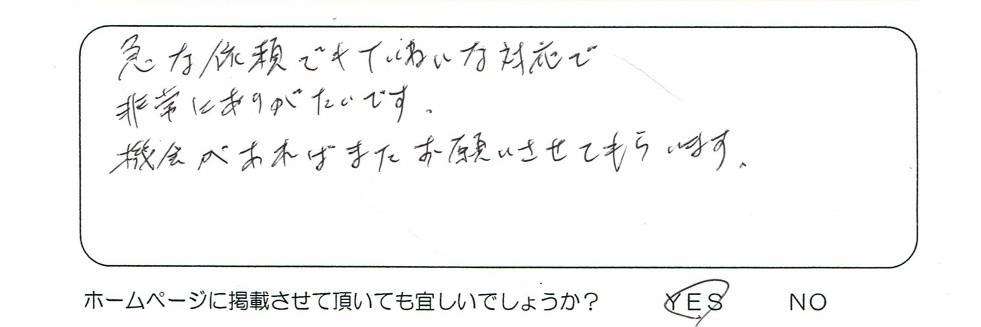 急な依頼でもていねいな対応で
非常にありがたいです。
機会があればまたお願いさせてもらいます。
ホームページに掲載させて頂いても宜しいでしょうか？ YES NO